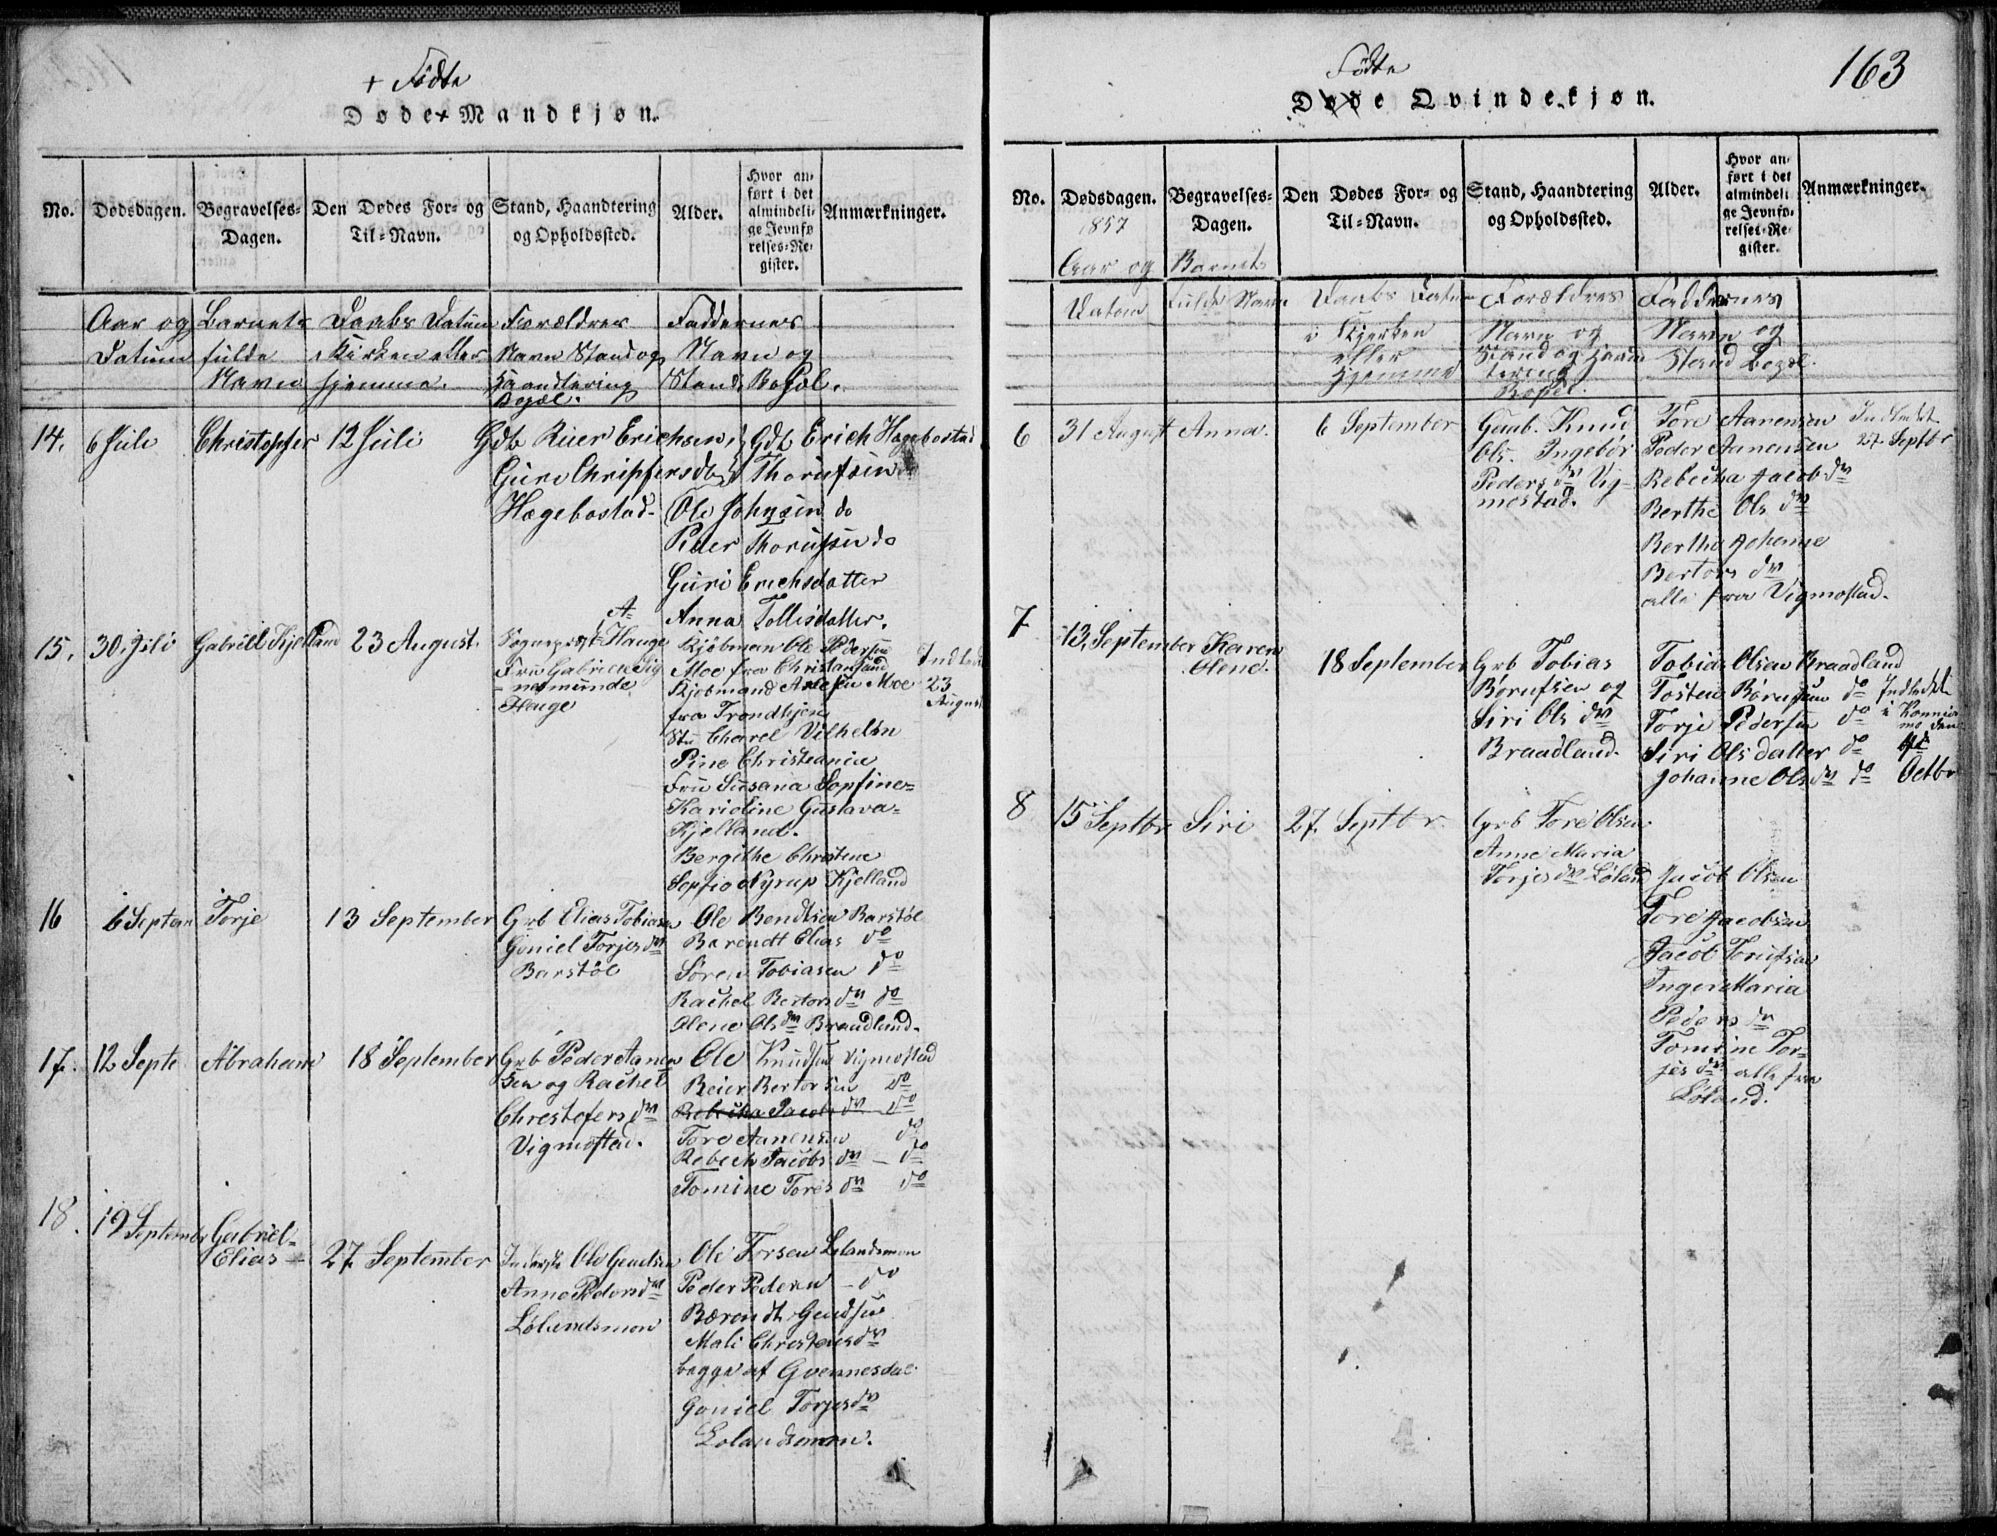 + Födte
Døde+ Mandkjøn.
No.
Dødsdagen.
Begravelses-
Dagen.
Den Dødes For- og
Til-Navn.
Stand, Haandtering
og Opholdssted.
Alder.
Hvor an-
ført i det
almindeli-
ge Jevnfø
relses-Re-
gister.
Anmærkninger.
Aar og
Datum
Barnets
fulde
Navn
Daabs Datum
i Kirken eller
hjemme.
Forældres
Navn Stand og
Haandtering
Bopæl.
Faddernes
Navn og
Stand, Bopæl.
14.
6 Juli
Christopher
12 Juli
Gdb Reier Erichsen,
Guri Chrispfersdtr
Hægebostad-
Gdb Erich Hægebostad
Thorufsen do
Ole Johnsen do
Peder Thorufsen do
Guri Erichsdatter
Anna Tollisdatter.
15.
30. Juli
Gabriell Kjelland
23 August.
A-
Sogneprest Hauge
Fru Gabriele Sig
nemunde
Hauge
Kjøbman Ole Pedersen
Moe fra Christansand
Kjøbmand Moe
fra Trondhjem
St. Charel Vilhelm
Pine Christiania
Fru Susana Sopfine-
Karioline Gustava-
Kjelland.
Bergithe Christine
Sopfio Nyrup Kjelland
Indledt
23
August
16
6 Septem
Torje
13 September
Grb Elias Tobiasen
Goniel Torjesdtr
Barstöl
Ole Bendtsen Barstöl
Barendt Elias do
Sören Tobiasen do
Rachel Bertors dtr do
Olene Ols dtr Braadland.
17.
12 Septe
Abraham
18 September
Grb Peder Aanen
sen og Rachel
Chrestofers dtr
Vigmostad.
Ole Knudsen Vigmostad
Reier Bertorsen do
Rebecka Jacobs dtr do
Tore Aanensen do
Rebech Jacobs dtr - do
Tomine Tores dtr do
18.
19 September
Gabriel-
Elias -
27 September
Inderste Ole Gundsen
Anne Peders dtr
Lölandsmon
Ole Torsen Lölandsmon
Peder Pedersen - do
Bærendt Gundsen
Mali Christens dtr
begge af Gvennesdal
Goniel Torjesdtr
Lolandsmon.
163
Födte
Døde Qvindekjøn.
No.
Dødsdagen.
1857
Begravelses-
Dagen.
Den Dødes For- og
Til-Navn.
Stand, Haandtering
og Opholdssted.
Alder.
Hvor an-
ført i det
almindeli
ge Jevnfø-
relses-Re-
gister.
Anmærkninger.
Aar og
Datum
Barnets
fulde Navn
Daabs Datum
i Kjerken
eller
Hjemme
Forældres
Navn og
Stand og Haan
tering
Bopæl.
Faddernes
Navn og
Stand Bopæl.
6
31 August
Anna.
6 September
Gaub. Knud
Ols. Ingebör
Peders dtr Vig-
mostad.
Tore Aanensen
Peder Aanensen
Rebecka Jacob dtr
Berthe Ols dtr
Bertha Johanne
Bertors dtr
alle fra Vigmostad.
Indledet
27 Septbr
7
13 September
Karen
Olene.
18 September
Grb Tobias
Börufsen og
Siri Ols dtr
Braadland.
Tobias Olsen Braadland
Tosten Börufsen do
Torje Pedersen do
Siri Olsdatter do
Johanne Ols dtr do
Indledet
i Konnis
mo den
Octbr
8
15 Septbr
Siri
27 Septbr.
Grb Tore Olsen.
Anne Maria
Torjes dtr Löland
Jacob Olsen
Tore Jacobsen
Jacob Torufsen
Inger Maria
Peders dtr
Tomine Tor-
jes dtr alle fra
Löland.